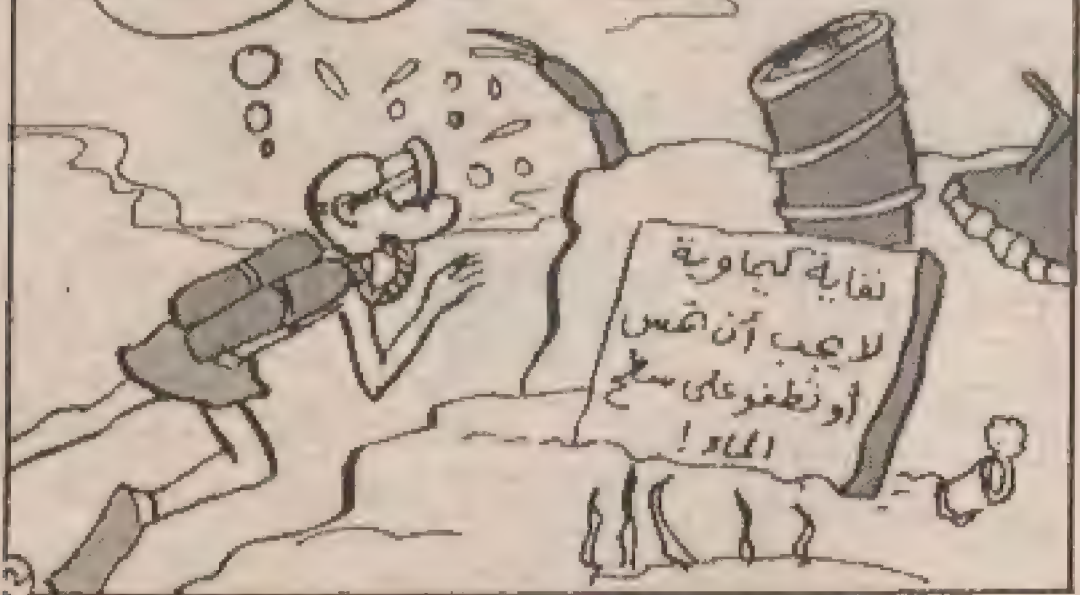 نفاية كيماوية
لا يجب أن تمس
أو تطفو على سطح
الماء !